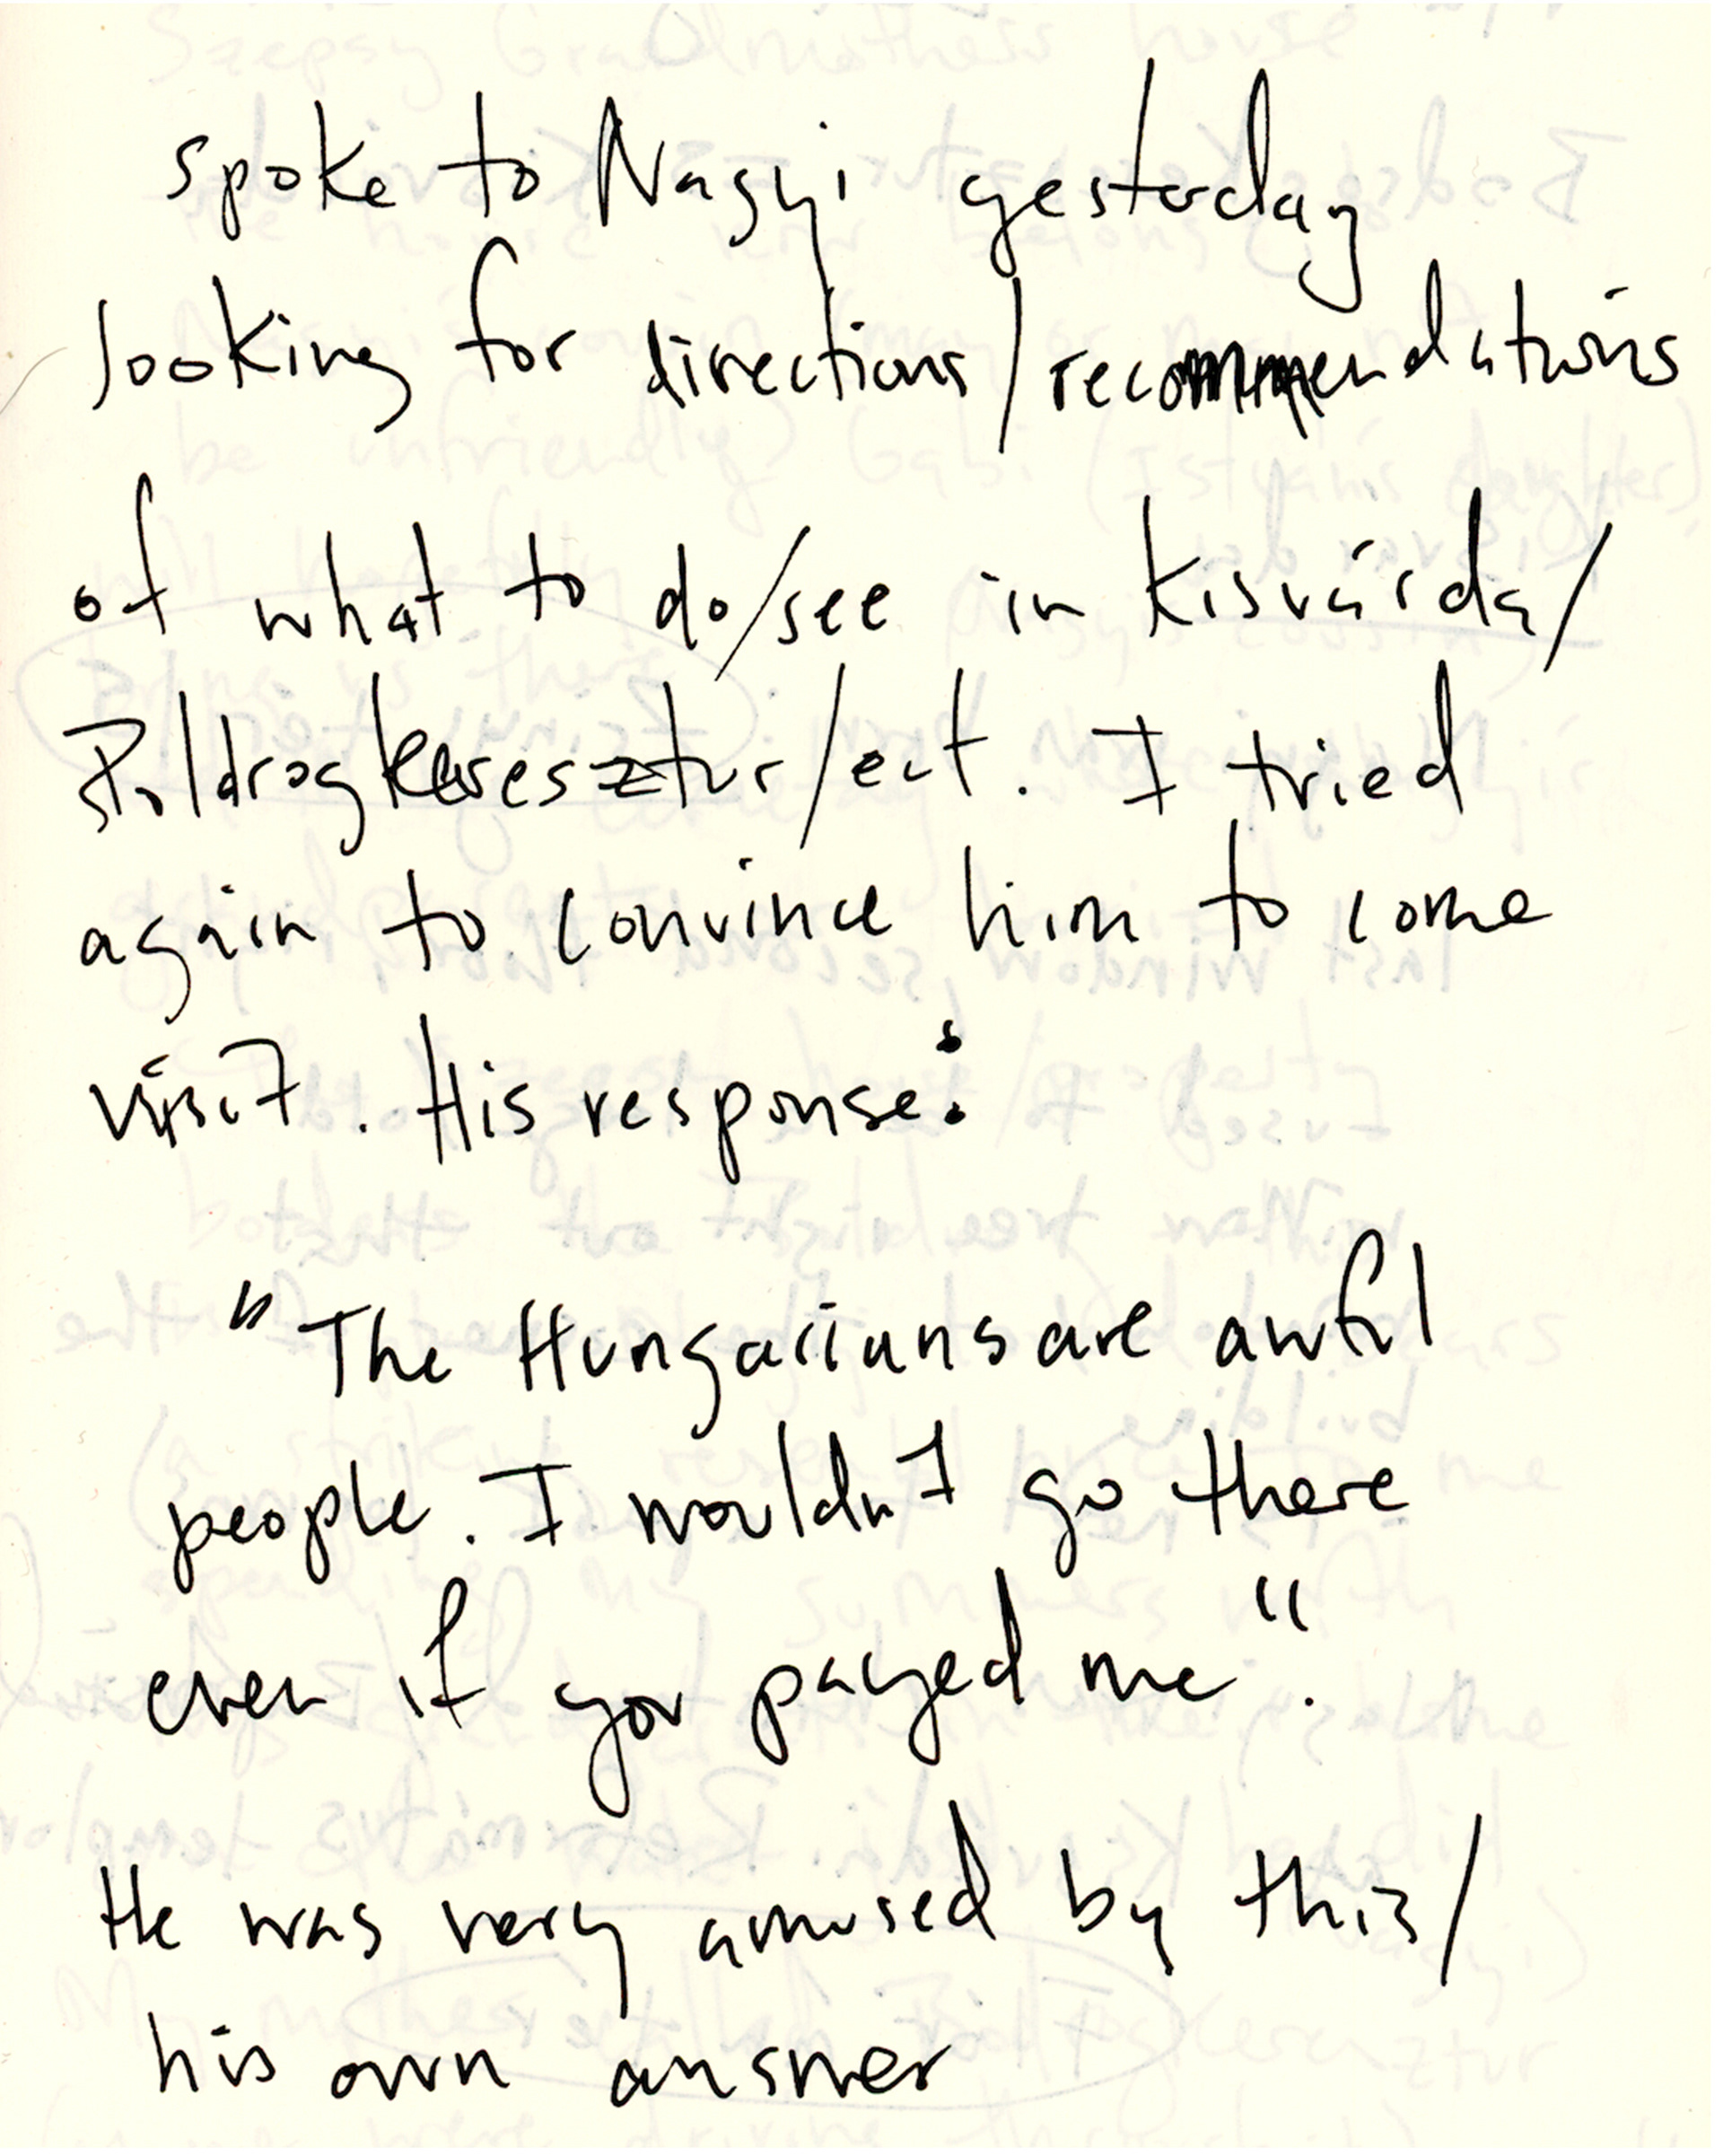 spoke to Nagyi yesterday
looking for directions/recommendations
of what to do/see in Kisvárda/
/ect. I tried
again to convince him to come
visit. His response:
"The Hungarians are awful
people. I wouldn't go there
even if you payed me".
He was very amused by this/
his own answer